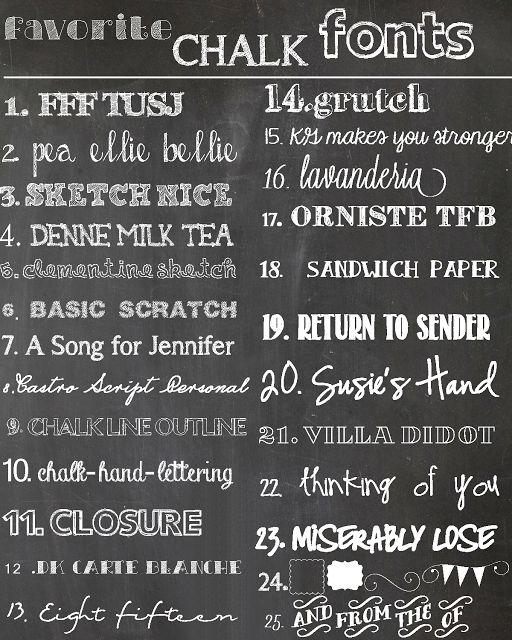 favorite CHALK fonts
1. FFF TUSJ
2. pea ellie bellie
3. SKETCH NICE
4. DENNE MILK TEA
5. clementine sketch
6. BASIC SCRATCH
7. A Song for Jennifer
8. Castro Script Personal
9. CHALK LINE OUTLINE
10. chalk-hand-lettering
11. CLOSURE
12 .DK CARTE BLANCHE
13. Eight fifteen
14. grutch
15. KG makes you stronger
16. lavanderia
17. ORNISTE TFB
18. SANDWICH PAPER
19. RETURN TO SENDER
20. Susie's Hand
21. VILLA DIDOT
22. thinking of you
23. MISERABLY LOSE
24.
25. AND FROM THE OF